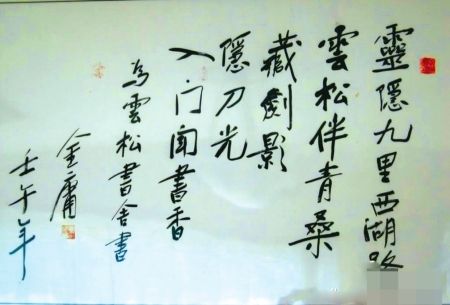 靈隱九里西湖畔
雲松伴青桑
藏劍影
隱刀光
入门闻書香
為雲松書舍書
金庸
壬午年